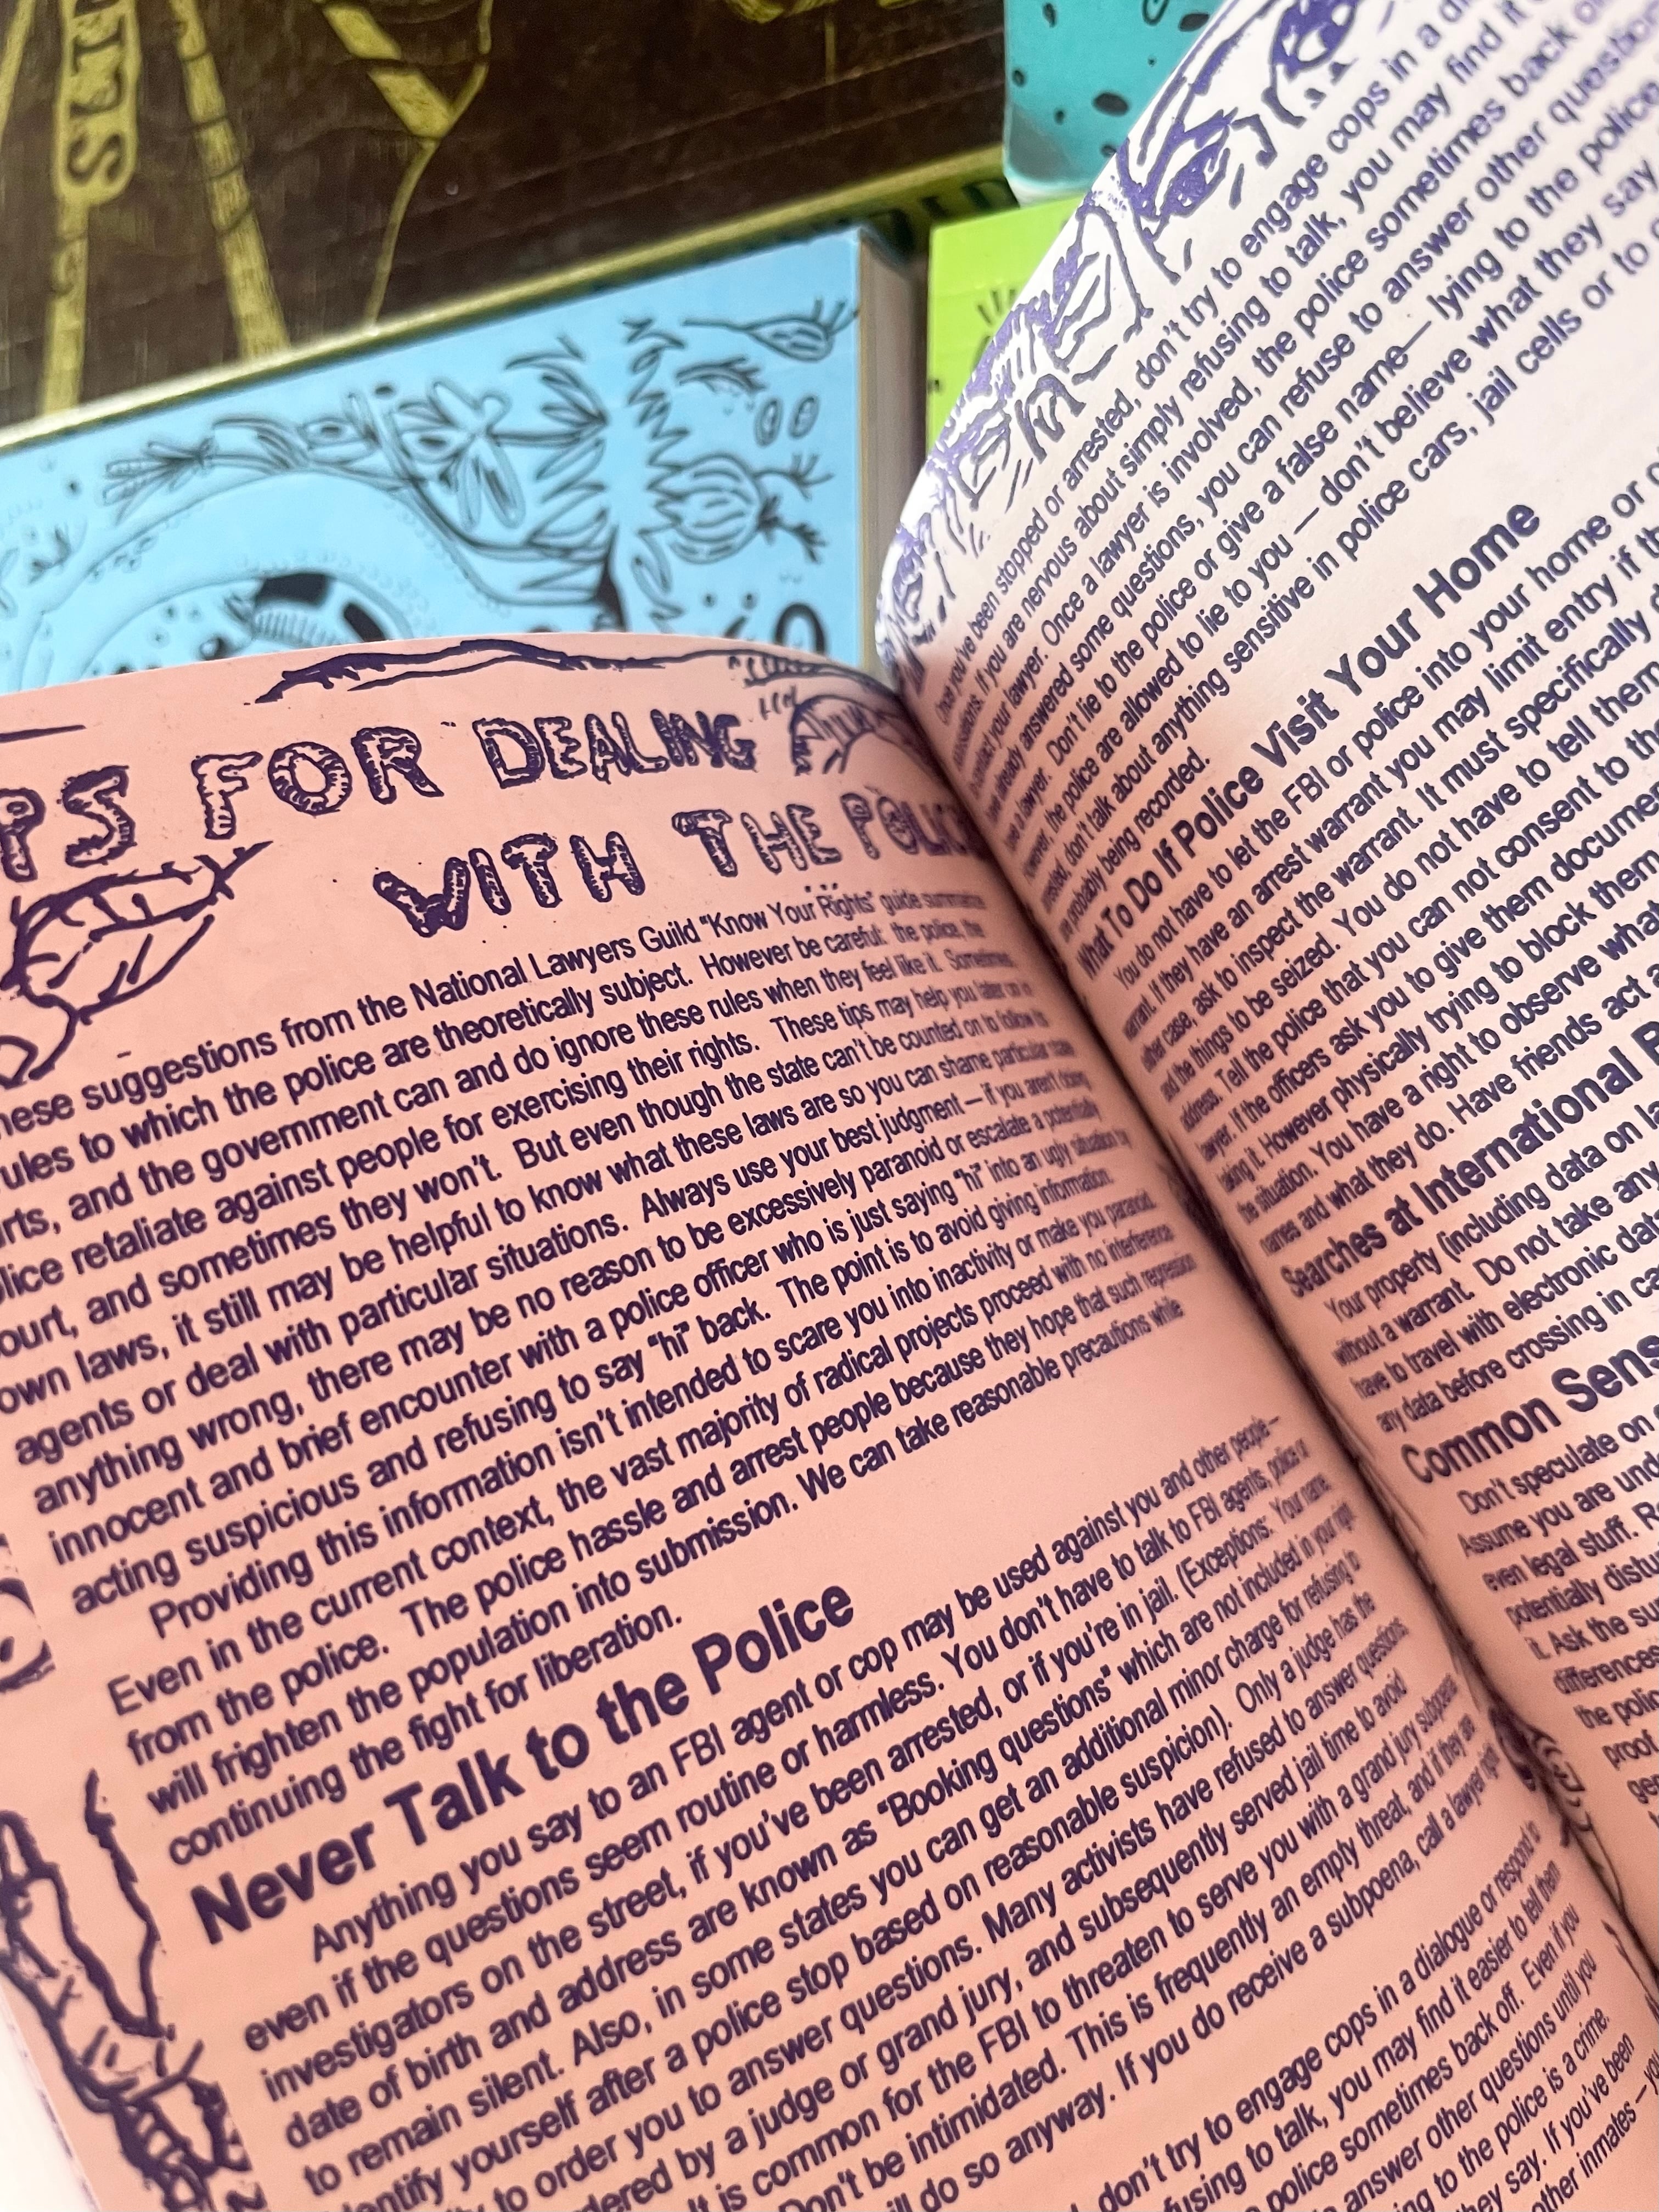 PS FOR DEALING
WITH THE POLIC
hese suggestions from the National Lawyers Guild “Know Your Rights” guide summarize
rules to which the police are theoretically subject. However be careful: the police, the
rts, and the government can and do ignore these rules when they feel like it. Sometimes,
lice retaliate against people for exercising their rights. These tips may help you later on in
ourt, and sometimes they won’t. But even though the state can’t be counted on to follow its
own laws, it still may be helpful to know what these laws are so you can shame particular state
agents or deal with particular situations. Always use your best judgment — if you aren’t doing
anything wrong, there may be no reason to be excessively paranoid or escalate a potentially
innocent and brief encounter with a police officer who is just saying “hi” into an ugly situation by
acting suspicious and refusing to say “hi” back. The point is to avoid giving information.
Providing this information isn’t intended to scare you into inactivity or make you paranoid.
Even in the current context, the vast majority of radical projects proceed with no interference
from the police. The police hassle and arrest people because they hope that such repression
will frighten the population into submission. We can take reasonable precautions while
continuing the fight for liberation.
Never Talk to the Police
Anything you say to an FBI agent or cop may be used against you and other people —
even if the questions seem routine or harmless. You don’t have to talk to FBI agents, police or
investigators on the street, if you’ve been arrested, or if you’re in jail. (Exceptions: Your name,
date of birth and address are known as “Booking questions” which are not included in your right
to remain silent. Also, in some states you can get an additional minor charge for refusing to
identify yourself after a police stop based on reasonable suspicion). Only a judge has the
to order you to answer questions. Many activists have refused to answer questions
dered by a judge or grand jury, and subsequently served jail time to avoid
It is common for the FBI to threaten to serve you with a grand jury subpoena
Don’t be intimidated. This is frequently an empty threat, and if they are
ill do so anyway. If you do receive a subpoena, call a lawyer right
don’t try to engage cops in a dialogue or respond to
fusing to talk, you may find it easier to tell them
police sometimes back off. Even if you
answer other questions until you
g to the police is a crime.
they say. If you’ve been
other inmates — you
Once you’ve been stopped or arrested, don’t try to engage cops in a di
questions. If you are nervous about simply refusing to talk, you may find it
contact your lawyer. Once a lawyer is involved, the police sometimes back o
have already answered some questions, you can refuse to answer other question
a lawyer. Don’t lie to the police or give a false name— lying to the police
However, the police are allowed to lie to you — don’t believe what they say
arrested, don’t talk about anything sensitive in police cars, jail cells or to
are probably being recorded.
What To Do If Police Visit Your Home
You do not have to let the FBI or police into your home or o
warrant. If they have an arrest warrant you may limit entry if th
other case, ask to inspect the warrant. It must specifically d
and the things to be seized. You do not have to tell them
address. Tell the police that you can not consent to the
lawyer. If the officers ask you to give them documen
taking it. However physically trying to block them
the situation. You have a right to observe what
names and what they do. Have friends act a
Searches at International B
Your property (including data on la
without a warrant. Do not take any
have to travel with electronic data
any data before crossing in ca
Common Sens
Don’t speculate on
Assume you are und
even legal stuff. R
potentially distu
it. Ask the su
differences
the polic
proof
gen